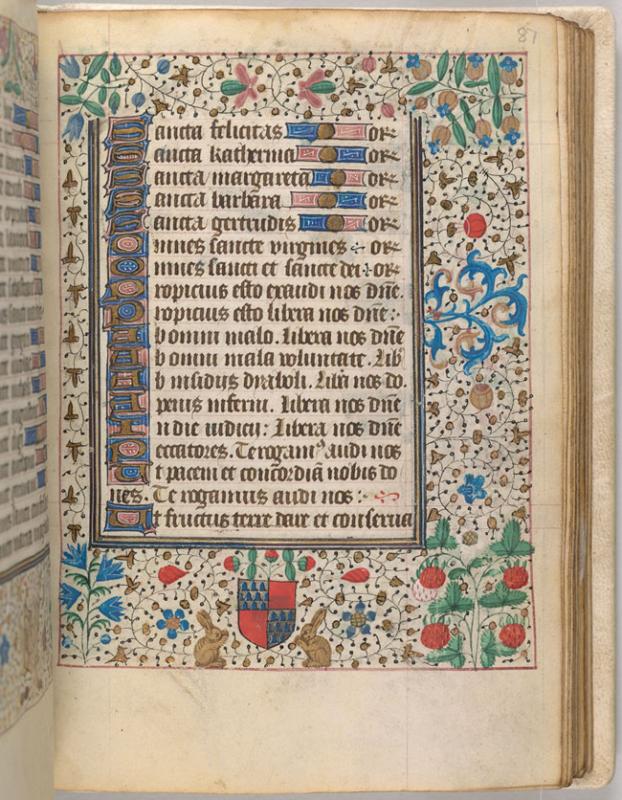 87
Sancta felicitas or
Sancta katherina or
Sancta margareta or
Sancta barbara or
Sancta gertrudis or
Omnes sancte virgines or
Omnes sancti et sancte dei or
Propicius esto exaudi nos dñe.
Propicius esto libera nos dñe:
Ab omni malo. Libera nos dñe
Ab omni mala voluntate. Lib
Ab insidijs dyaboli. Libera nos do.
A penis inferni. Libera nos dñe
In die iudicij: Libera nos dñe
Peccatores. Te rogamꝰ audi nos
Ut pacem et concordiã nobis do
nes. Te rogamus audi nos:
Ut fructus terre dare et conserua